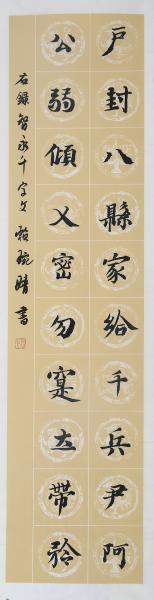 戶封八縣家給千兵尹阿
公弱傾乂密勿寔帶矜
右錄智永千字文 晴書